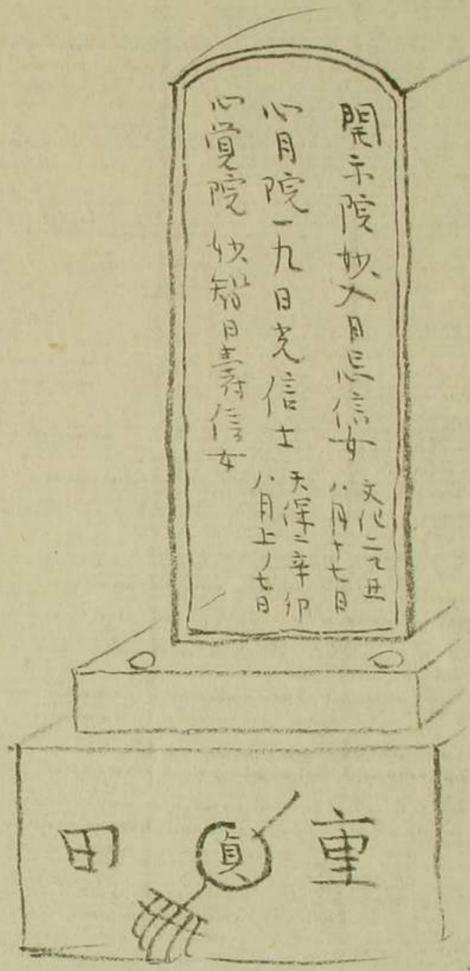 開示院妙入日信女
文化二乙丑
八月十七日
心月院一九日光信士
天保二辛卯
八月上ノ七日
心覚院妙智日壽信女
重貞田